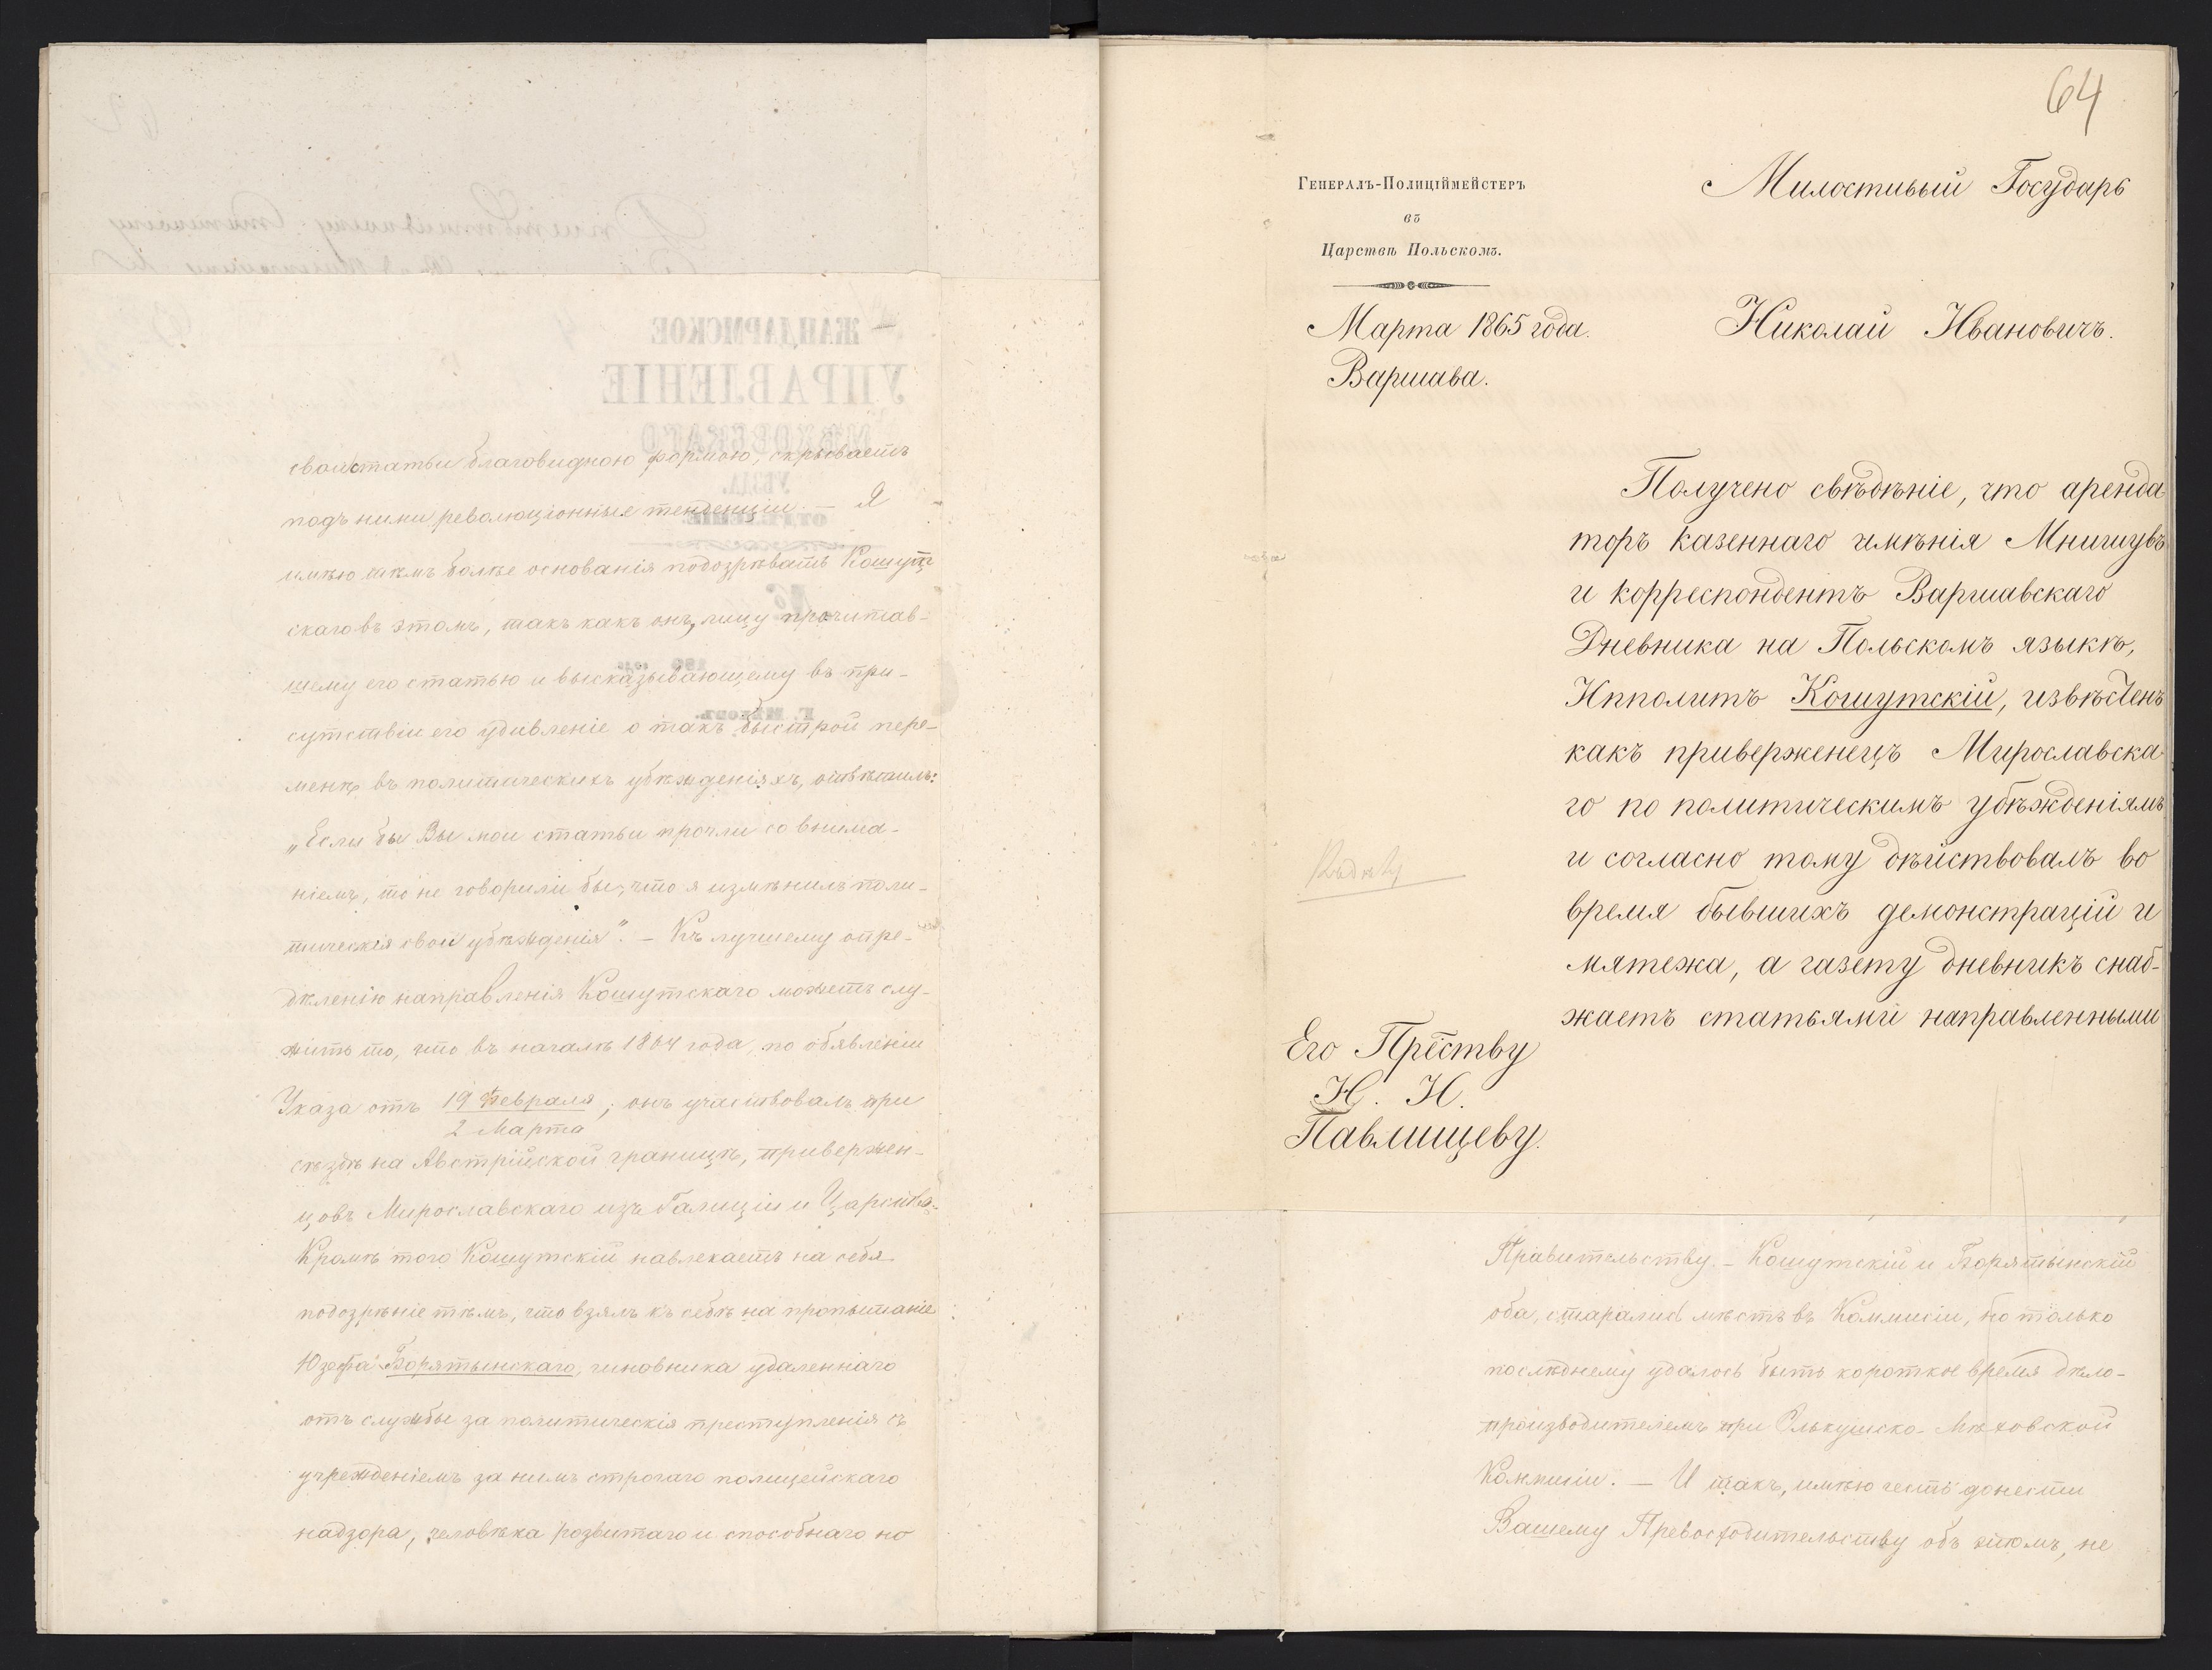 свои статьи благовидною формою, скрываетъ
подъ ними революціонные тенденціи. — Я
имѣю тѣмъ болѣе основанія подозрѣвать Кошут-
скаго въ этомъ, такъ какъ онъ, лицу прочитав-
шему его статью и высказывающему въ при-
сутствіи его удивленіе о такъ быстрой пере-
менѣ въ политическихъ убѣжденіяхъ, отвѣтилъ:
„Если бы Вы мои статьи прочли со внима-
ніемъ, то не говорили бы, что я измѣнилъ поли-
тическія свои убѣжденія". — Къ лучшему опре-
дѣленію направленія Кошутскаго можетъ слу-
жить то, что въ началѣ 1864 года, по обявленіи
Указа отъ 19 Февраля, онъ участвовалъ при
2 Марта
съѣздѣ на Австрійской границѣ, привержен-
цовъ Мирославскаго изъ Галиціи и Царства.
Кромѣ того Кошутскій навлекаетъ на себя
подозрѣніе тѣмъ, что взялъ къ себѣ на пропытаніе
Юзефа Борятынскаго, чиновника удаленнаго
отъ службы за политическія преступленія съ
учрежденіемъ за нимъ строгаго полицейскаго
надзора, человѣка розвитаго и способнаго но
64
Генералъ-Полиціймейстеръ
въ
Царствѣ Польскомъ.
Марта 1865 года.
Варшава.
Милостивый Государь
Николай Ивановичъ.
Получено свѣдѣніе, что аренда
торъ казеннаго имѣнія Мнишувъ
и корреспондентъ Варшавскаго
Дневника на Польскомъ языкѣ,
Ипполитъ Кошутскій, извѣстенъ
какъ приверженецъ Мирославска
го по политическимъ убѣжденіямъ
и согласно тому дѣйствовалъ во
время бывшихъ демонстрацій и
мятежа, а газету дневникъ снаб-
жаетъ статьями направленными
Его Прёству
Н. И.
Павлищеву.
Правительству. — Кошутскій и Борятынскій
оба, старались мѣстъ въ Коммисіи, но только
послѣднему удалось быть короткое время дѣло-
производителемъ при Олькушско-Мѣховской
Коммисіи. — И такъ, имѣю честь донести
Вашему Превосходительству объ этомъ, не